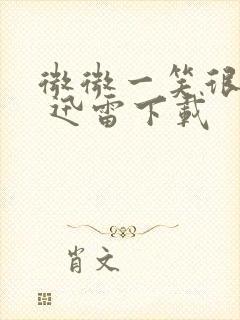 微微一笑很
迅雷下載
肖文